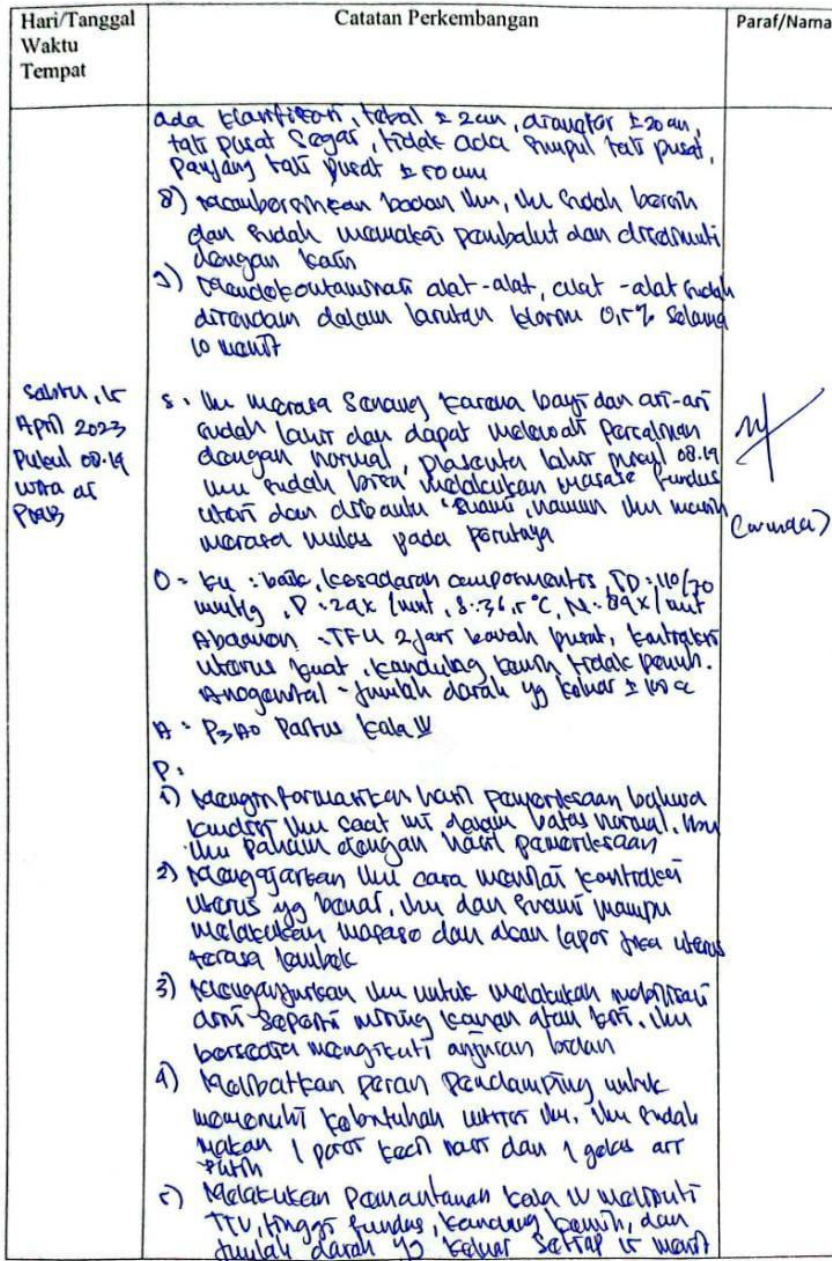 Hari/Tanggal
Waktu
Tempat
Catatan Perkembangan
Paraf/Nama
ada klasifikasi, tebal ± 2cm, diameter ± 20 cm,
tali pusat segar, tidak ada simpul tali pusat,
panjang tali pusat ± 50 cm
8) Membersihkan badan ibu, ibu sudah bersih
dan sudah memakai pembalut dan diselimuti
dengan kain
9) Mendekontaminasi alat-alat, alat-alat sudah
direndam dalam larutan klorin 0,5% selama
10 menit
Sabtu, 15
April 2023
Pukul 08.19
wita di
S: Ibu merasa senang karena bayi dan ari-ari
sudah lahir dan dapat melewati persalinan
dengan normal, plasenta lahir pukul 08.19
ibu sudah bisa melakukan masase fundus
uteri dan dibantu suami, namun ibu masih
merasa mulas pada perutnya
O = KU : baik, kesadaran composmentis, TD : 110/70
mmHg, R : 24x/mnt, S : 36,5°C, N : 89x/mnt
Abdomen - TFU 2 jari bawah pusat, kontraksi
uterus kuat, kandung kemih tidak penuh.
Anogenital - Jumlah darah yg keluar ± cc
A : P3A0 Partus kala IV
P :
1) Menginformasikan hasil pemeriksaan bahwa
kondisi ibu saat ini dalam batas normal.
ibu paham dengan hasil pemeriksaan
2) Mengajarkan ibu cara menilai kontraksi
uterus yg benar, ibu dan suami mampu
melakukan masase dan akan lapor jika uterus
terasa lembek
3) Menganjurkan ibu untuk melakukan mobilisasi
dini seperti miring kanan atau kiri. ibu
bersedia mengikuti anjuran bidan
4) Melibatkan peran pendamping untuk
memenuhi kebutuhan nutrisi ibu, ibu sudah
makan 1 porsi kecil nasi dan 1 gelas air
putih
5) Melakukan pemantauan kala IV meliputi
TTV, tinggi fundus, kandung kemih, dan
jumlah darah yg keluar setiap 15 menit